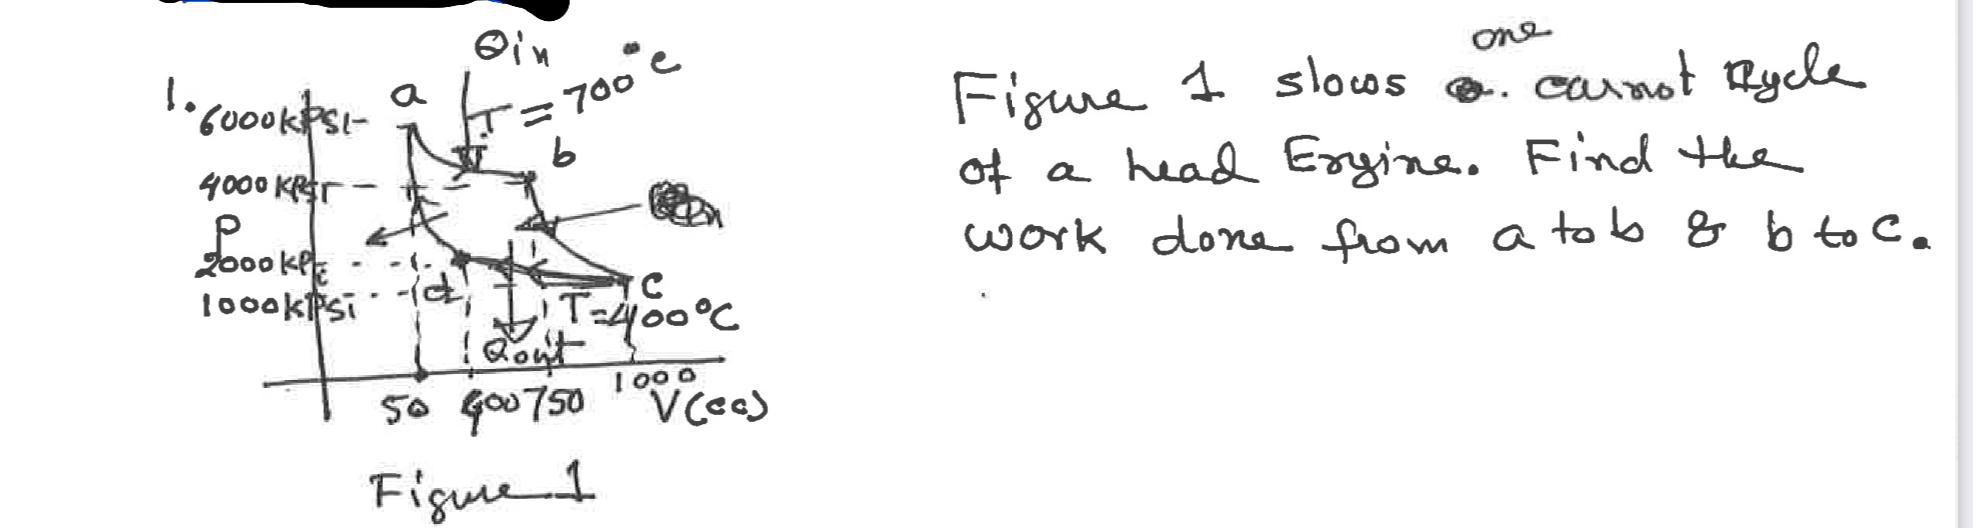 Qin
1.
6000kPSI
a
T = 700°C
b
4000 KPSI
P
2000KP
1000kPSi
d
c
T=400°C
Qout
50 400 750 1000
V(cc)
Figure 1
one
Figure 1 slows carnot Cycle
of a head Engine. Find the
work done from a to b & b to c.